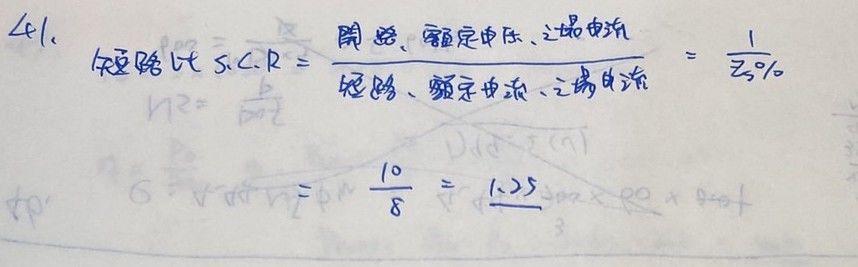 41.
短路比 S.C.R = 開路、額定电压、之場电流 / 短路、額定电流、之場电流 = 1 / Zs%
= 10 / 8 = 1.25